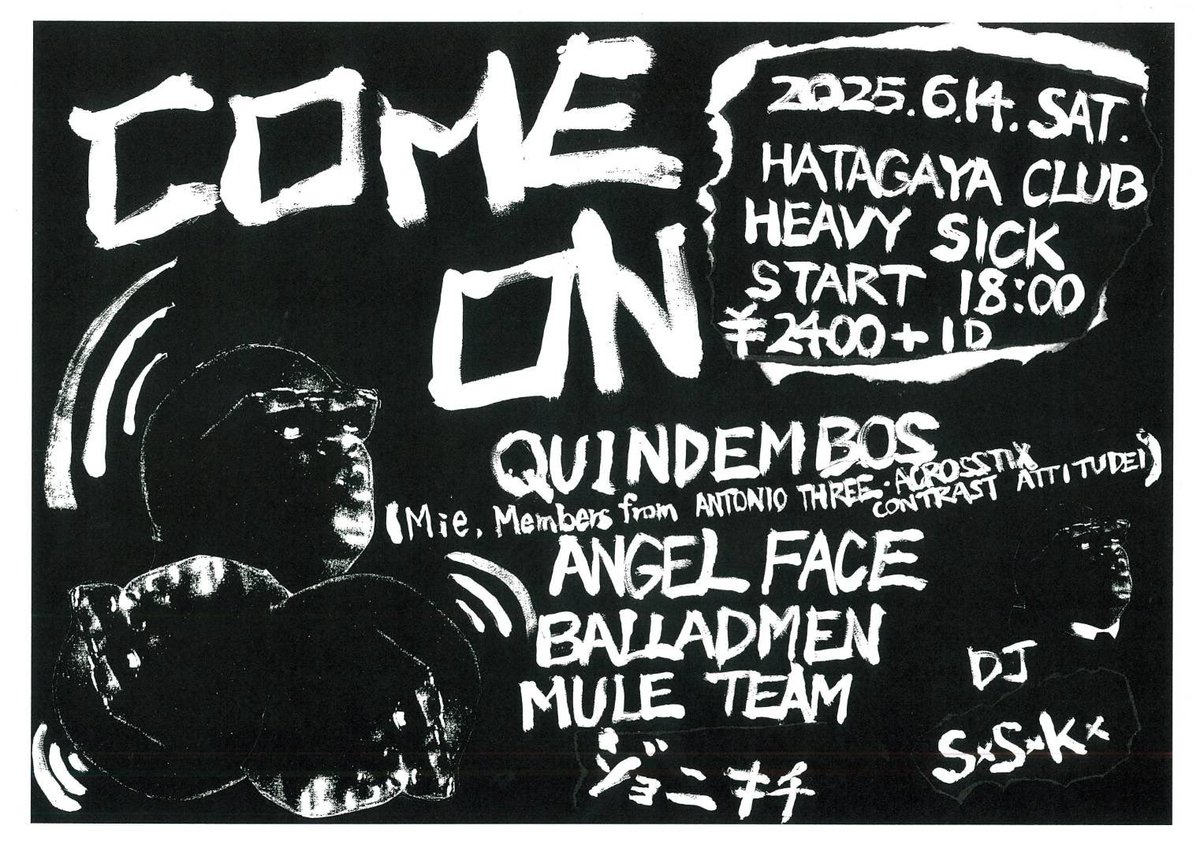 COME
ON
2025.6.14. SAT.
HATAGAYA CLUB
HEAVY SICK
START 18:00
¥2400+1D
QUINDEMBOS
(Mie, Members from ANTONIO THREE・ACROSSTIX
CONTRAST ATTITUDE!)
ANGEL FACE
BALLADMEN
MULE TEAM
ジョニー
DJ
S×S×K×